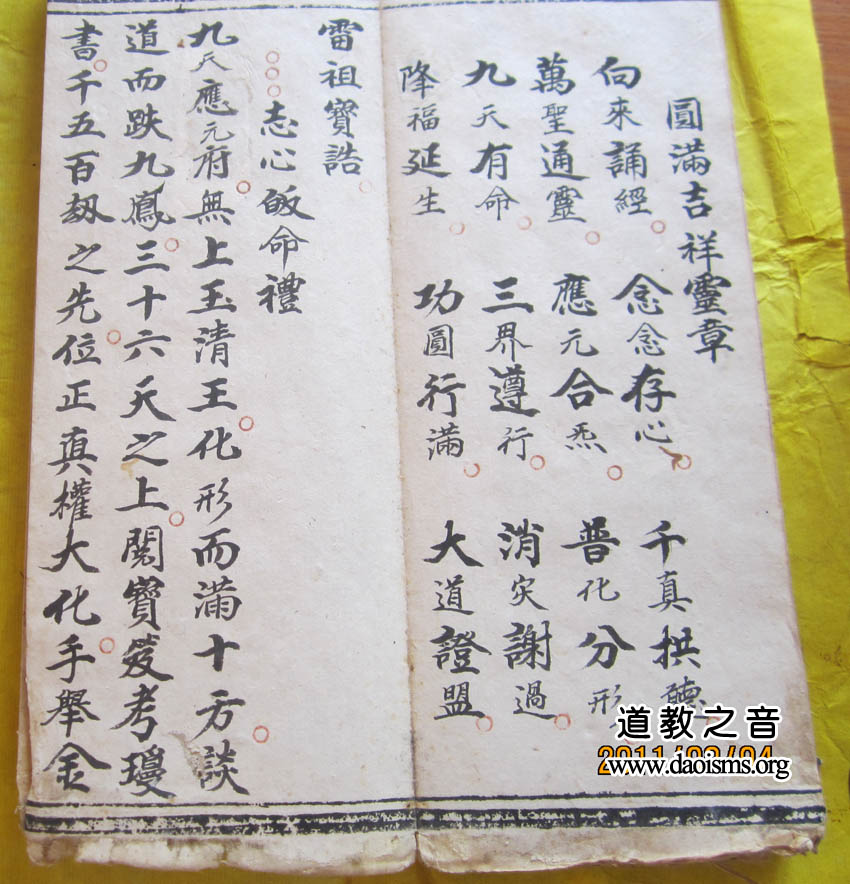 圓滿吉祥靈章
向來誦經 念念存心 千真拱聽
萬聖通靈 應元合炁 普化分形
九天有命 三界遵行 消災謝過
降福延生 功圓行滿 大道證盟
雷祖寶誥
志心皈命禮
九天應元府無上玉清王化形而滿十方談
道而趺九鳳三十六天之上閱寶笈考瓊
書千五百劫之先位正真權大化手舉金
道教之音
www.daoisms.org